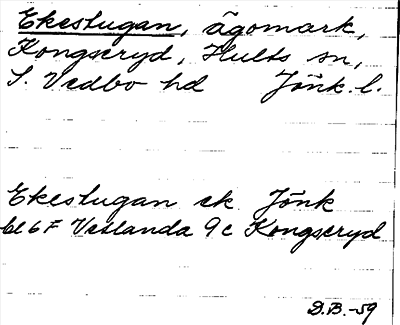 Ekestugan, ägomark,
Kongseryd, Hults sn,
S. Vedbo hd Jönk. l.
Ekestugan ek Jönk
bl 6 F Vetlanda 9c Kongseryd
D.B. -59